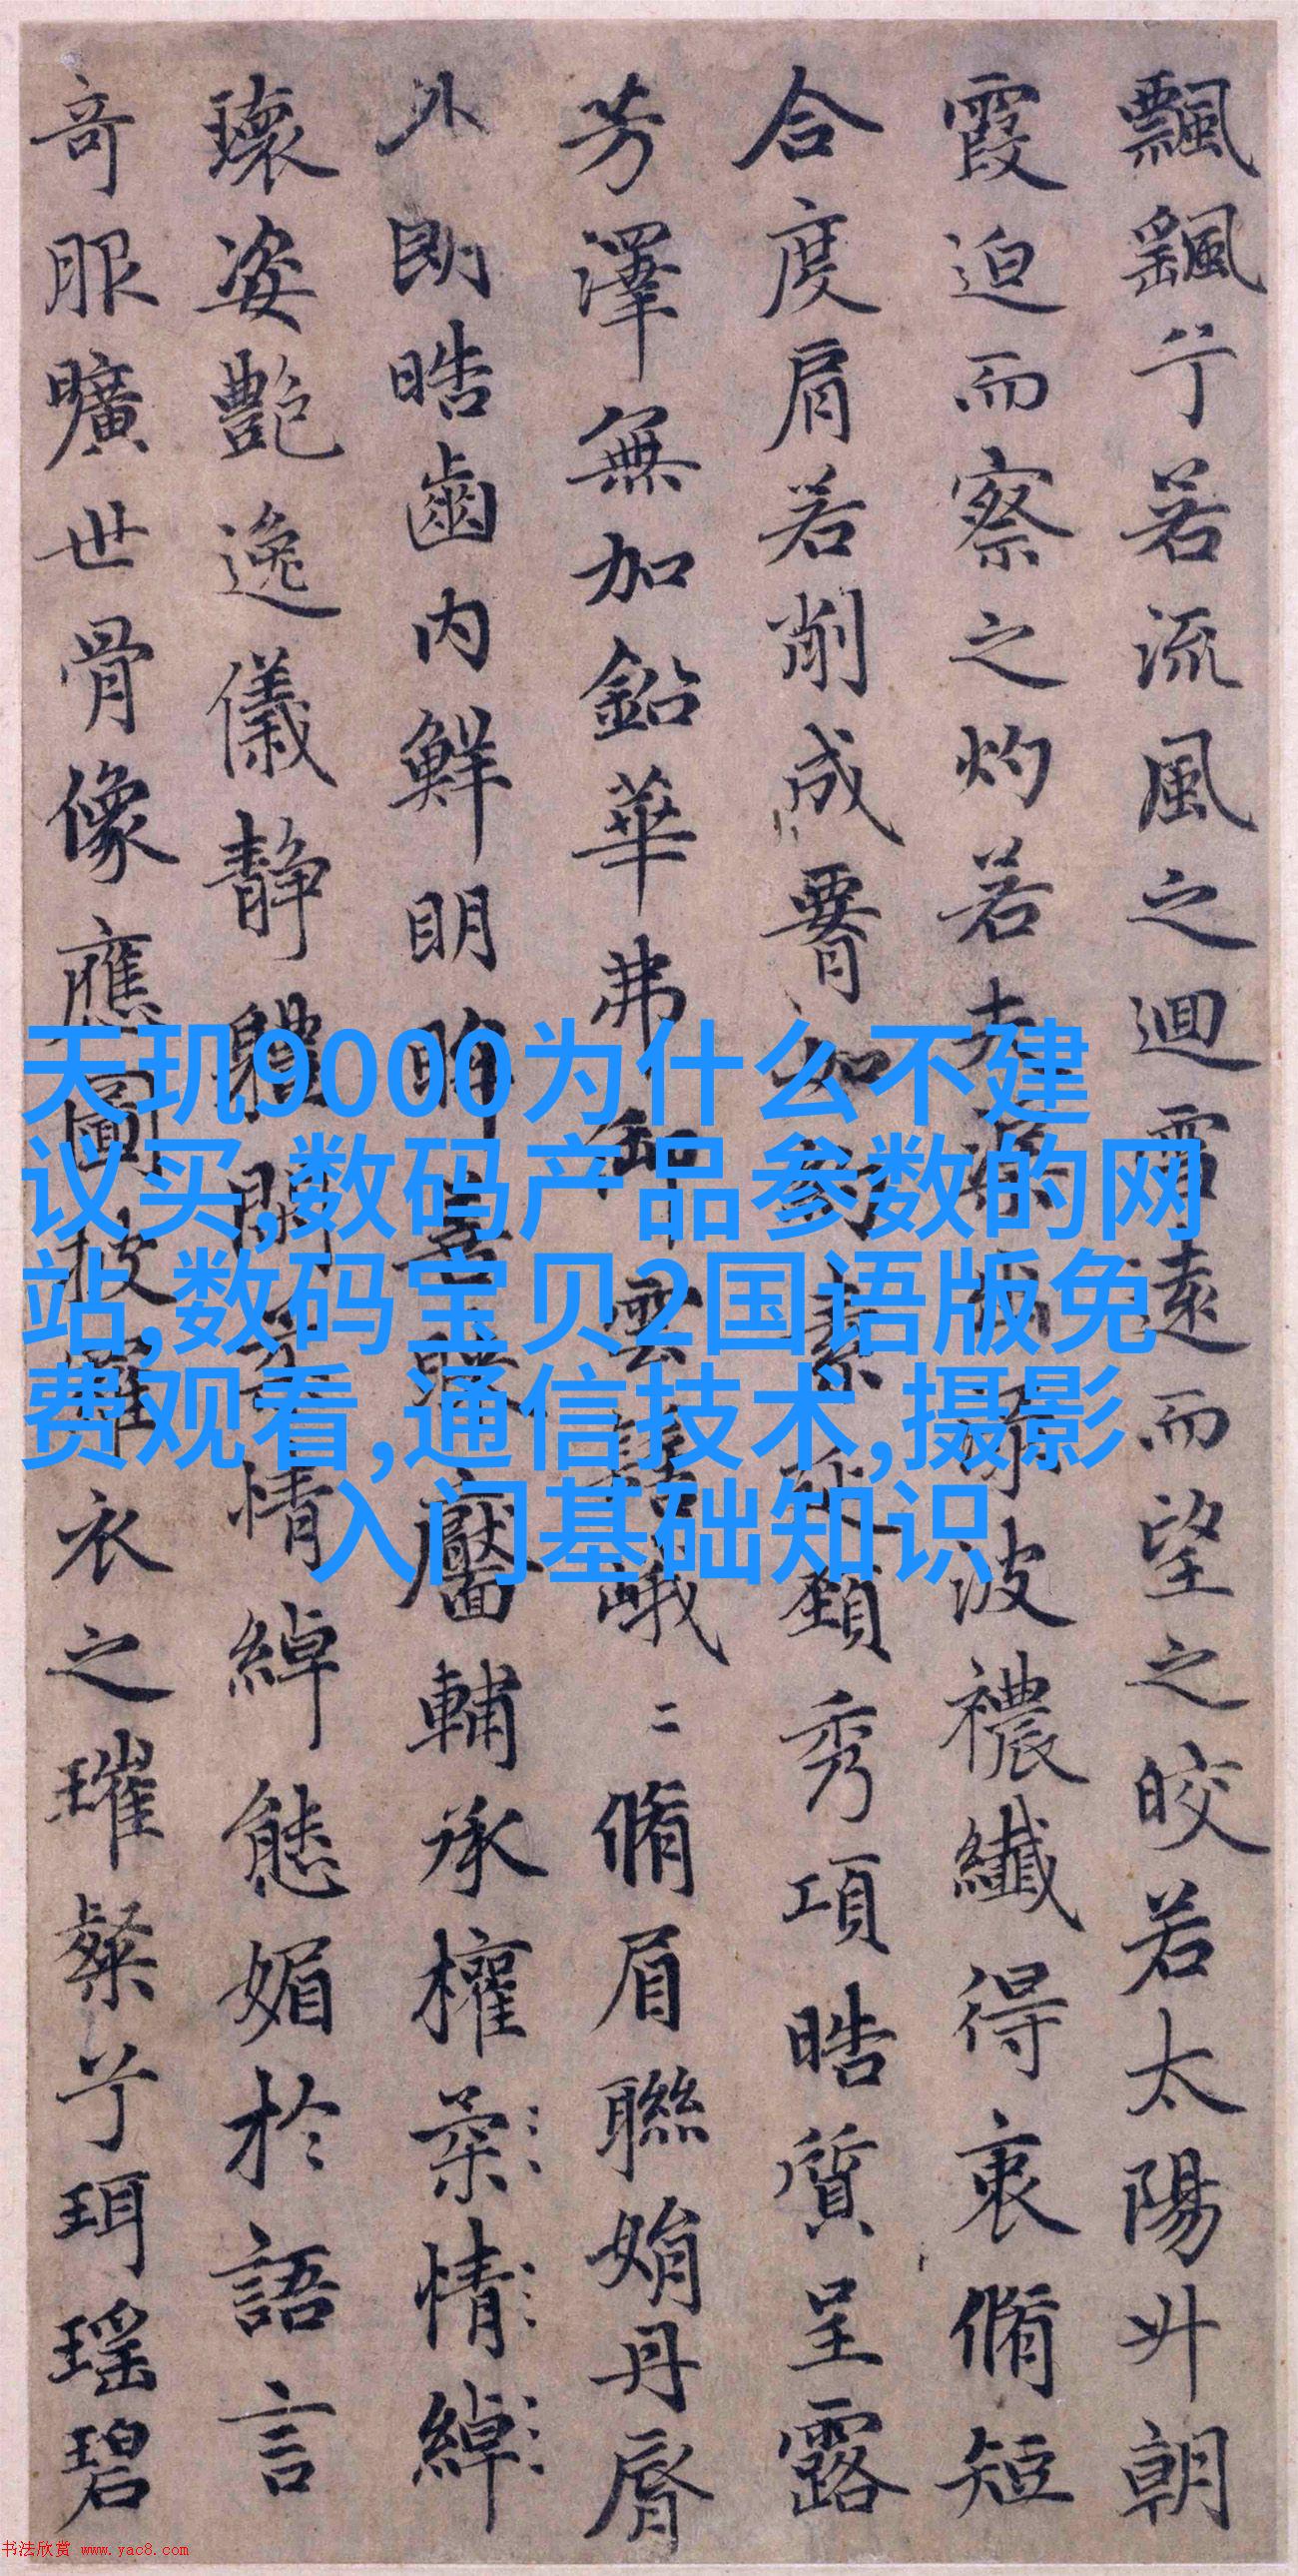 飄飖兮若流風之迴雪遠而望之皎若太陽升朝
霞迫而察之灼若夫渠出淥波禯纖得衷脩短
合度肩若削成要如約素延頸秀項皓質呈露
芳澤無加鉛華弗御雲髻峨二脩眉聯娟丹脣
外朗皓齒内鮮明眸善睞靨輔承權柔情綽
瓌姿艷逸儀静體閑柔情綽態媚於語言
奇服曠世骨像應圖披羅衣之璀粲兮珥瑶碧
天玑9000为什么不建
议买,数码产品参数的网
站,数码宝贝2国语版免
费观看,通信技术,摄影
入门基础知识
书法欣赏 www.yac8.com